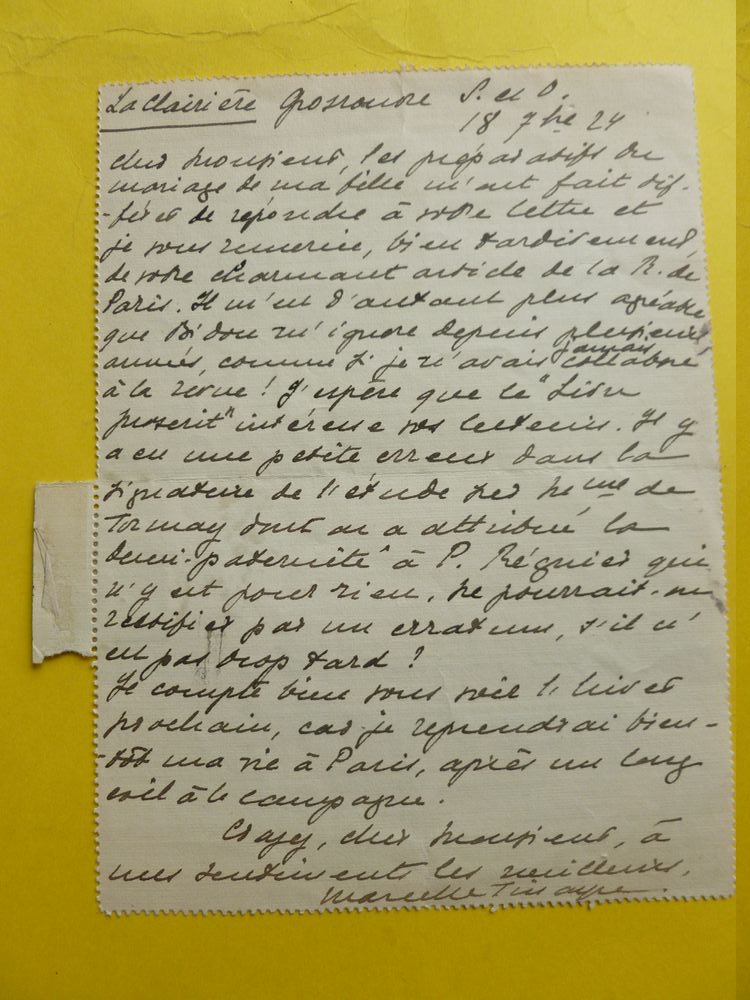 La Clairière Grosrouvre S. et O.
18 7bre 24
cher Monsieur, les préparatifs du
mariage de ma fille m'ont fait dif-
-férer de répondre à votre lettre et
je vous remercie, bien tardivement,
de votre charmant article de la R. de
Paris. Il m'est d'autant plus agréable
que Bidou m'ignore depuis plusieurs
années, comme si je n'avais jamais collaboré
à la revue ! J'espère que le "Lion
proscrit" intéresse vos lecteurs. Il y
a eu une petite erreur dans la
signature de l'étude sur Mme de
Tormay dont on a attribué la
demi-paternité à P. Régnier qui
n'y est pour rien. Ne pourrait-on
rectifier par un erratum, s'il n'
est pas trop tard ?
Je compte bien vous voir l'hiver
prochain, car je reprendrai bien-
-tôt ma vie à Paris, après un long
exil à la campagne.
Croyez, cher Monsieur, à
mes sentiments les meilleurs.
Marcelle Tinayre.